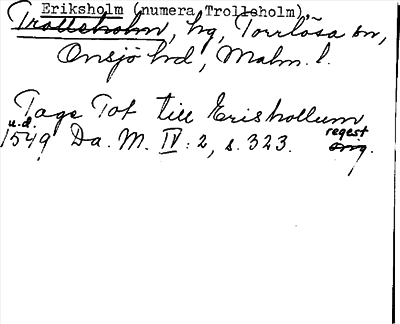 Eriksholm (numera Trolleholm),
Trolleholm, hg, Torrlösa sn,
Onsjö hd, Malm. l.
Tage Tot till Erishollum
u.d. 1549 Da. M. IV: 2, s. 323. regest
orig.